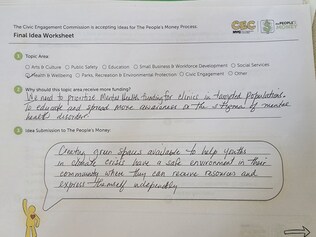 The Civic Engagement Commission is accepting ideas for The People's Money Process:
Final Idea Worksheet
CEC NYC
THE PEOPLE'S MONEY
1 Topic Area
Arts & Culture Public Safety Education Small Business & Workforce Development Social Services
Health & Wellbeing Parks, Recreation & Environmental Protection Civic Engagement Other
2 Why should this topic area receive more funding?
We need to prioritize Mental Health funding for clinics in targeted populations.
To educate and spread more awareness on the stigma of mental
health disorder.
3 Idea Submission to The People's Money:
Creating green spaces available to help youths
in climate crisis have a safe environment in their
community where they can receive resources and
express themself independently